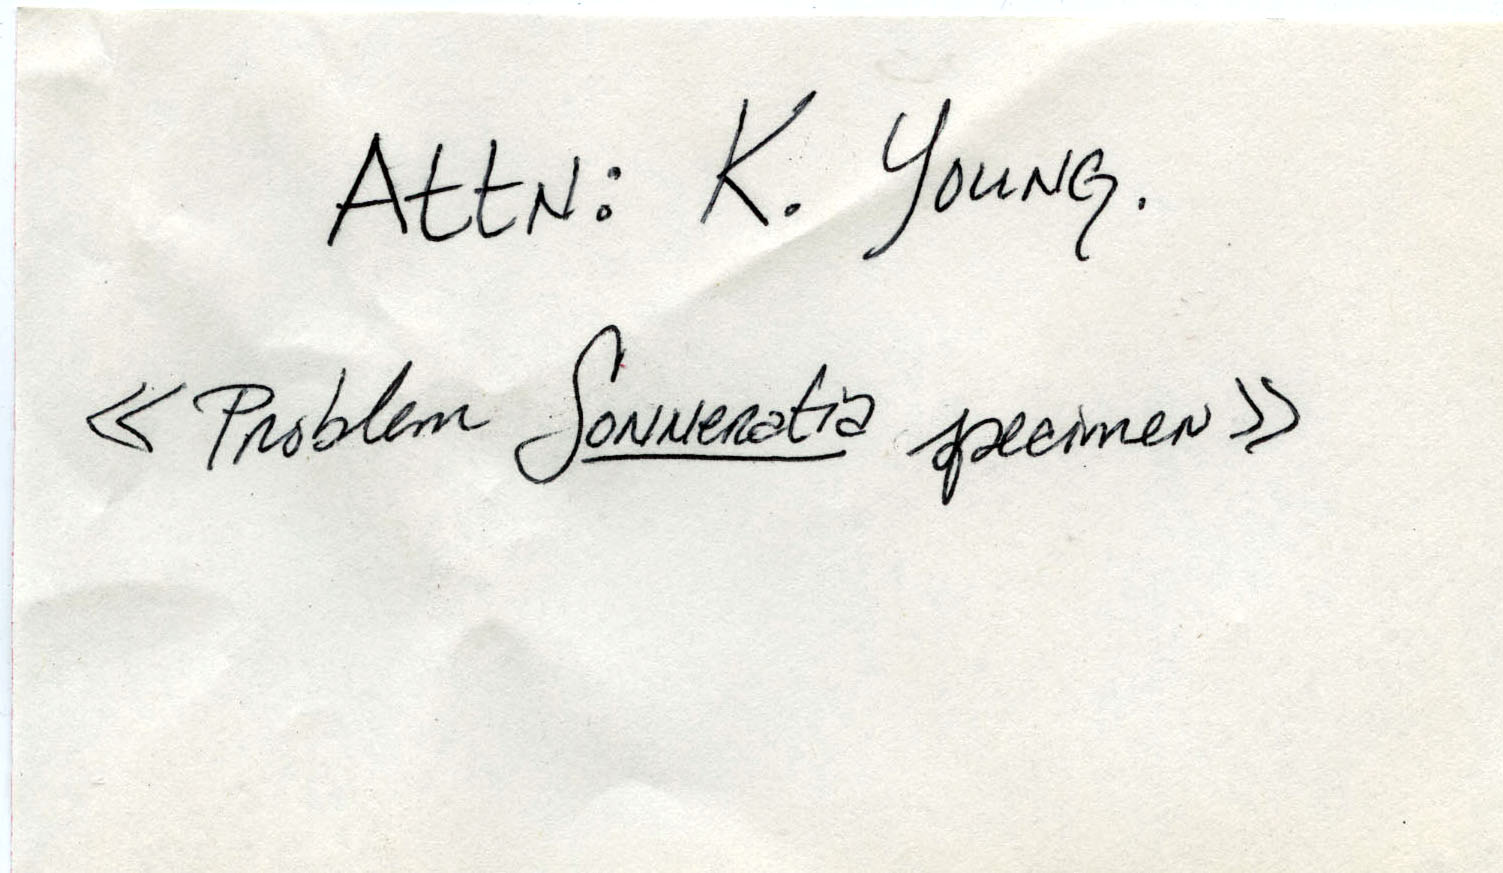 Attn: K. Young.
<< Problem Sonneratia specimen >>